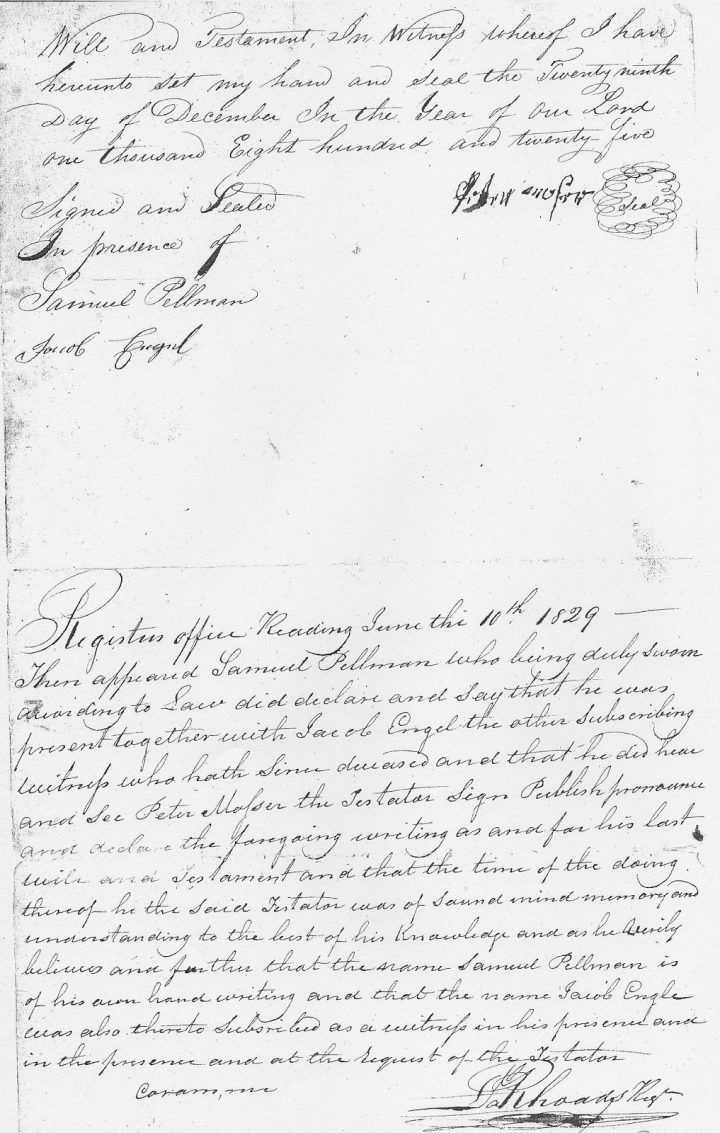 Will and Testament, In Witness whereof I have
hereunto set my hand and seal the Twenty ninth
Day of December In the Year of our Lord
one thousand Eight hundred and twenty five
Signed and Sealed
In presence of
Seal
Samuel Pellman
Jacob Engel
Registers office Reading June the 10th 1829
Then appeared Samuel Pellman who being duly sworn
according to Law did declare and say that he was
present together with Jacob Engel the other Subscribing
witness who hath Since deceased and that he did hear
and See Peter Mosser the Testator Sign Publish pronounce
and declare the foregoing writing as and for his last
will and Testament and that the time of the doing
thereof he the Said Testator was of Sound mind memory and
understanding to the best of his Knowledge and as he Verily
believes and further that the name Samuel Pellman is
of his own hand writing and that the name Jacob Engle
was also thereto Subsribed as a witness in his presence and
in the presence and at the request of the Testator
Coram, me
Rhoads Regr.